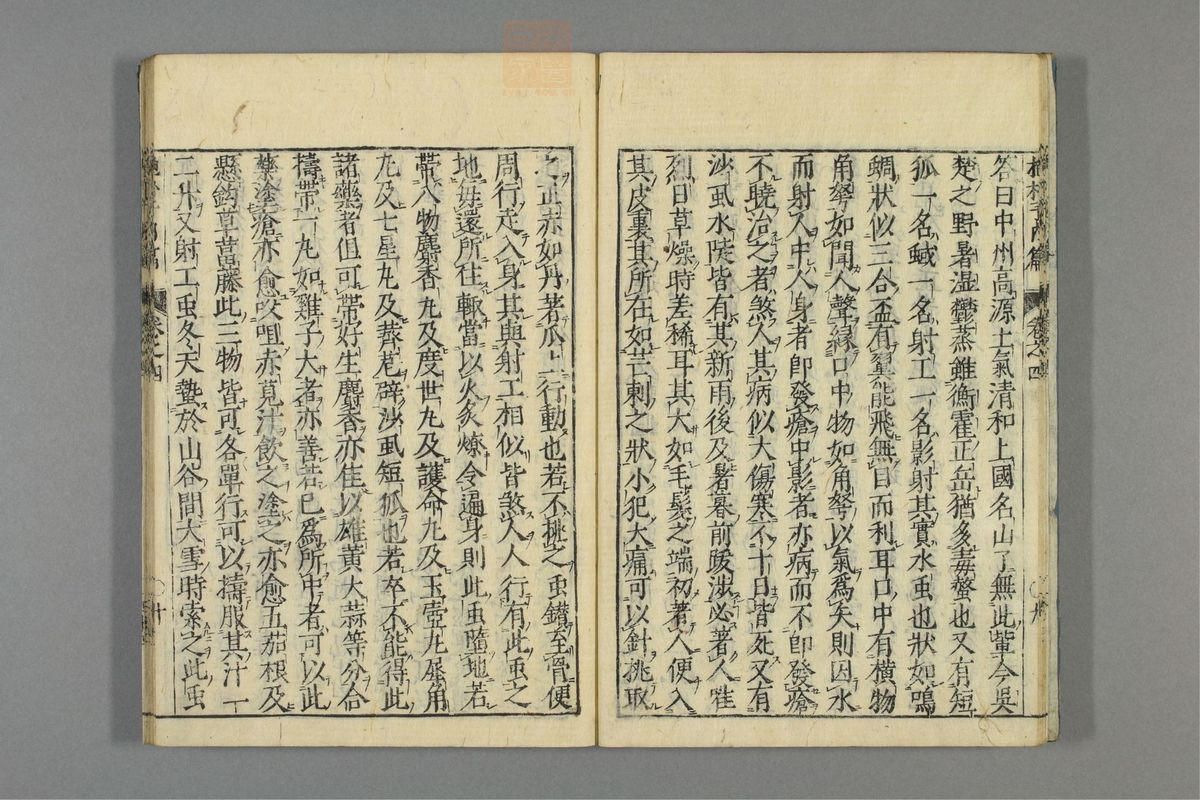 答曰中州高源土氣清和上國名山了無此輩今吳
楚之野暑湿鬱蒸雖衡霍正岳猶多毒螫也又有短
狐一名蜮一名射工一名射影其實水虫也狀如鳴
蜩狀似三合盃有翼能飛無目而利耳口中有横物
角弩如聞人聲縁口中物如角弩以氣爲矢則因水
而射人中人身者即發瘡中影者亦病而不即發瘡
不曉治之者煞人其病似大傷寒不十日皆死又有
沙虱水陸皆有其新雨後及暑暮前跋涉必著人唯
烈日草燥時差稀耳其大如毛髮之端初著人便入
其皮裏其所在如芒刺之狀小犯大痛可以針挑取
之正赤如丹著爪上行動也若不挑之虫鑚至骨便
周行走入身其與射工相似皆煞人人行有此虫之
地毎還所住輙當以火炙燎令遍身則此虫墮地若
帶八物麝香丸及度世丸及護命丸及玉壺丸犀角
丸及七星丸及薺苨辟沙虱短狐也若卒不能得此
諸藥者但可帶好生麝香亦佳以雄黄大蒜等分合
擣帶一丸如雞子大者亦善若已爲所中者可以此
藥塗瘡亦愈㕮咀赤莧汁飲之塗之亦愈五茄根及
懸鈎草葍藤此三物皆可各單行可以擣服其汁一
二升又射工虫冬天蟄於山谷間大雪時索之此虫
内篇
卷之四
十
内篇
卷之四